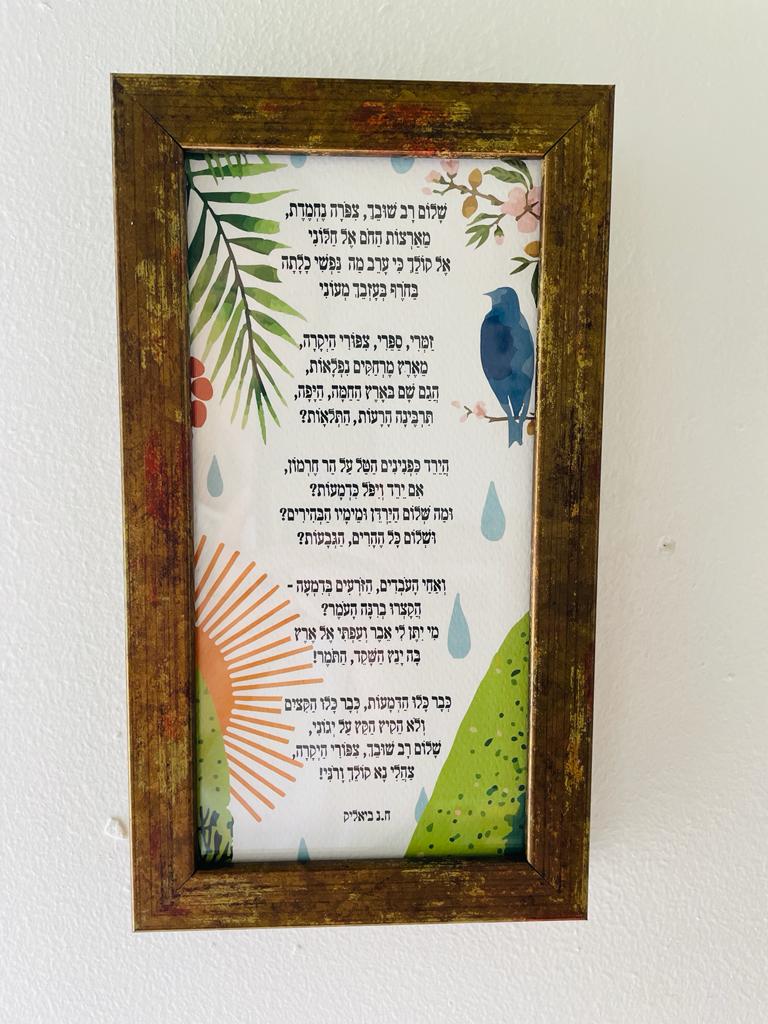 שָׁלוֹם רָב שׁוּבֵךְ, צִפֹּרָה נֶחְמֶדֶת,
מֵאַרְצוֹת הַחֹם אֶל חַלּוֹנִי
אֶל קוֹלֵךְ כִּי עָרֵב מַה נַּפְשִׁי כָלָתָה
בַּחֹרֶף בְּעָזְבֵךְ מְעוֹנִי
זַמְּרִי, סַפֵּרִי, צִפּוֹרִי הַיְקָרָה,
מֵאֶרֶץ מֶרְחַקִּים נִפְלָאוֹת,
הֲגַם שָׁם בָּאָרֶץ הַחַמָּה, הַיָּפָה,
תִּרְבֶּינָה הָרָעוֹת, הַתְּלָאוֹת?
הֲיֵרֵד כִּפְנִינִים הַטַּל עַל הַר חֶרְמוֹן,
אִם יֵרֵד וְיִפֹּל כִּדְמָעוֹת?
וּמַה שְּׁלוֹם הַיַּרְדֵּן וּמֵימָיו הַבְּהִירִים?
וּשְׁלוֹם כָּל הֶהָרִים, הַגְּבָעוֹת?
וְאַחַי הָעֹבְדִים, הַזּוֹרְעִים בְּדִמְעָה -
הֲקָצְרוּ בְרִנָּה הָעֹמֶר?
מִי יִתֶּן לִי אֵבֶר וְעַפְתִּי אֶל אֶרֶץ
בָּהּ יָנֵץ הַשָּׁקֵד, הַתֹּמֶר!
כְּבָר כָּלוּ הַדְּמָעוֹת, כְּבָר כָּלוּ הַקִּצִּים
וְלֹא הֵקִיץ הַקֵּץ עַל יְגוֹנִי,
שָׁלוֹם רָב שׁוּבֵךְ, צִפּוֹרִי הַיְקָרָה,
צַהֲלִי נָא קוֹלֵךְ וָרֹנִּי!
ח.נ ביאליק